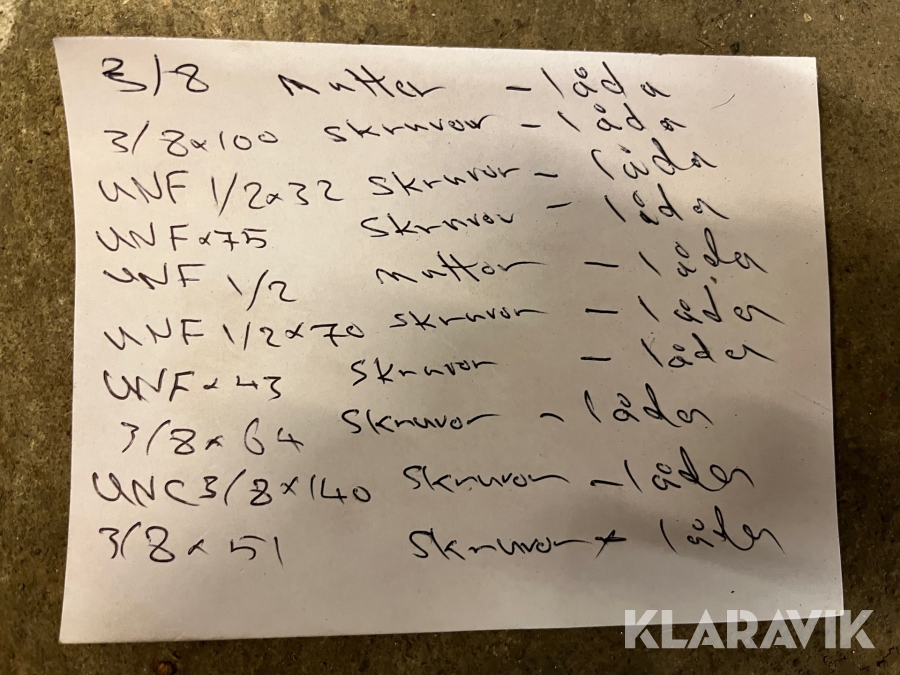 3/8 mutter - låda
3/8x100 skruvor - låda
UNF 1/2x32 skruvor - låda
UNFx75 skruvor - låda
UNF 1/2 muttor - låda
UNF 1/2x70 skruvor - låda
UNFx43 skruvor - låda
3/8x64 skruvor - låda
UNC3/8x140 skruvor - låda
3/8x51 skruvor - låda
KLARAVIK